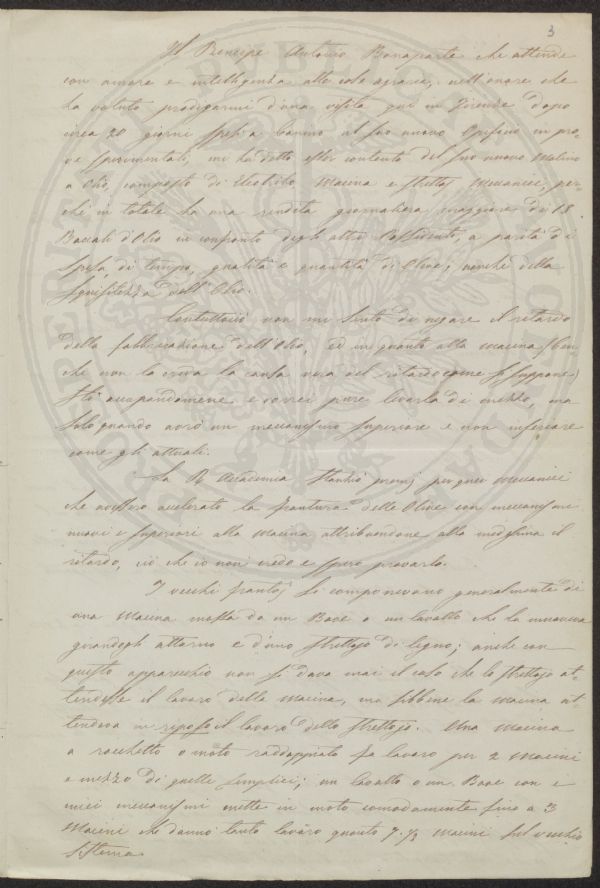 3
Il Principe Antonio Bonaparte che attende
con amore e intelligenza alle cose agrarie, nell'onore che
ha voluto prodigarmi d'una visita qui in Firenze dopo
circa 20 giorni spesi a al suo nuovo Opificio in pro-
ve sperimentali, mi ha detto esser contento del suo nuovo Molino
a Olio, composto di Macina e Strettoj Meccanici, per-
chè in totale ha una rendita giornaliera maggiore di 18
Barili d'Olio in confronto degli altri Possidenti, a parità di
spesa, di tempo, qualità e quantità di Olive; nonchè della
squisitezza dell'Olio.
Contuttociò non mi sento di negare il ritardo
della fabbricazione dell'Olio, ed in quanto alla macina (ben
che non la creda la causa vera del ritardo come si suppone)
stò occupandomene e vorrei pure levarla di mezzo, ma
solo quando avrò un meccanismo superiore e non inferiore
come gli attuali.
La R. Accademia stanziò premj per quei Meccanici
che avessero accelerato la frantura delle Olive con meccanismi
nuovi e superiori alla macina attribuendone alla medesima il
ritardo, ciò che io non credo e spero provarlo.
I vecchi frantoj si componevano generalmente di
una Macina mossa da un Bove o un Cavallo che la muoveva
girandogli attorno e d'uno Strettojo di legno; anche con
questo apparecchio non si dava mai il caso che lo Strettojo at-
tendesse il lavoro della Macina, ma sibbene la Macina at-
tendeva in riposo il lavoro dello Strettojo. Una Macina
a rocchetto o moto raddoppiato fa lavoro per 2 Macini
e mezzo di quelle semplici; un Cavallo o un Bove con e
miei meccanismi mette in moto comodamente fino a 3
Macini che danno tanto lavoro quanto 7 ½ macini sul vecchio
sistema.
PROSPERITATI